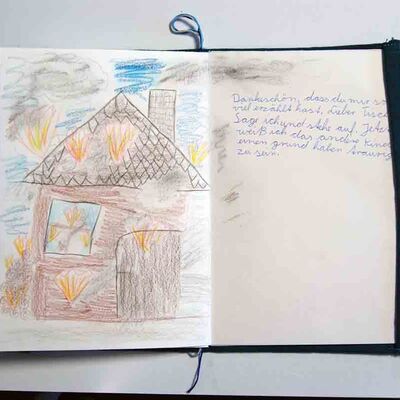 Dankeschön, dass du mir so
viel erzählt hast, lieber Tisch
Sage ich und stehe auf. Jetzt
weiß ich das andere Kinder
einen grund haben traurig
zu sein.